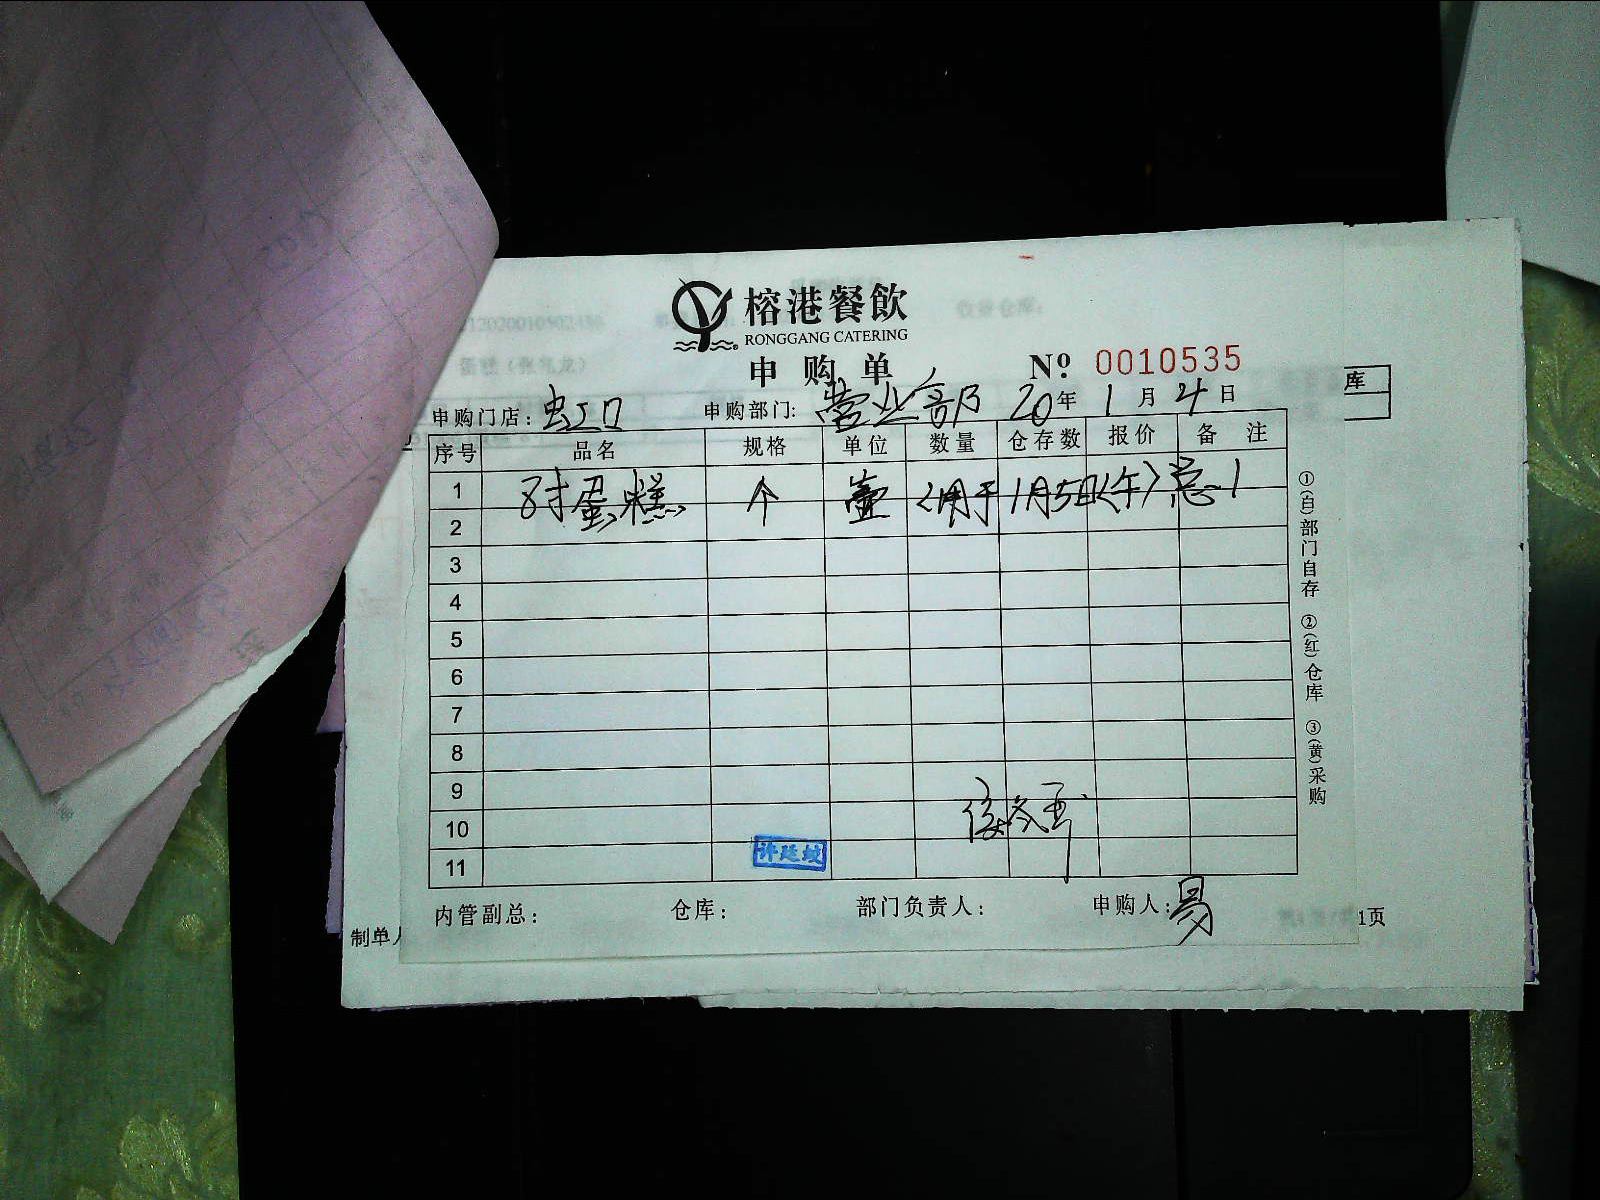 榕港餐飲
RONGGANG CATERING
申购单 Nº 0010535
申购门店：虹口 申购部门：营业部 20年 1月 4日
序号 品名 规格 单位 数量 仓存数 报价 备注
1 8寸蛋糕 个 壹 (用于1月5日(午)
2
3
4
5
6
7
8
9
10
11
内管副总： 仓库： 部门负责人： 申购人：易
①(白)部门自存 ②(红)仓库 ③(黄)采购
库
制单人
1页